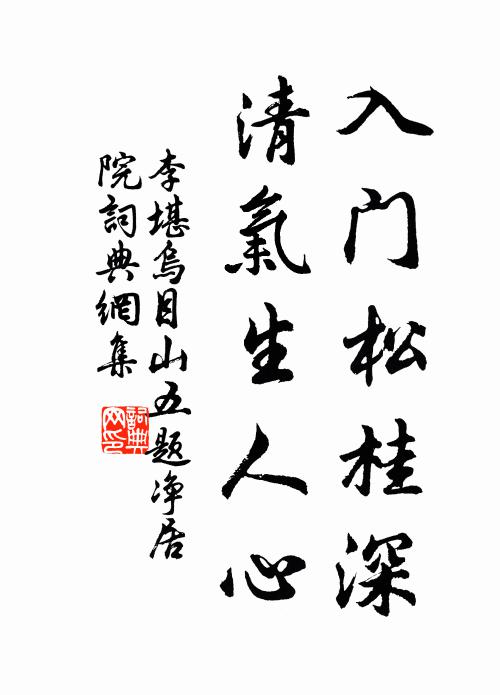 入门松桂深
清氣生人心
李堪烏目山五题净居
院詞典網集
詞典
网印